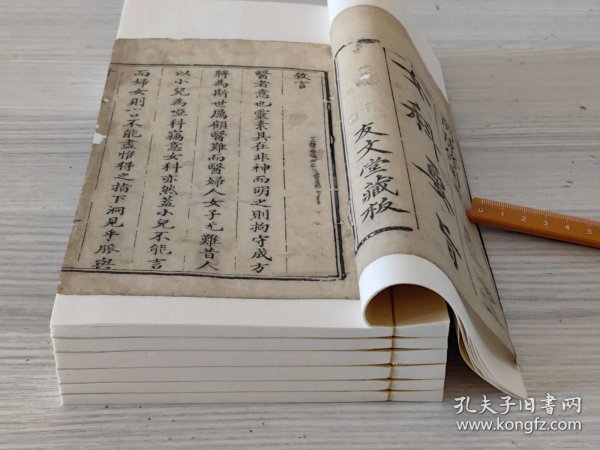 女科要旨
友文堂藏板
敘言
醫者意也靈素具在非神而明之則拘守成方
將為斯世厲顧醫難而醫婦人女子尤難昔人
以小兒為啞科竊意女科亦然蓋小兒不能言
而婦女則言不能盡惟得之指下洞見乎脈與
0 1 2 3 4 5
孔夫子旧书网
www.kongfz.com